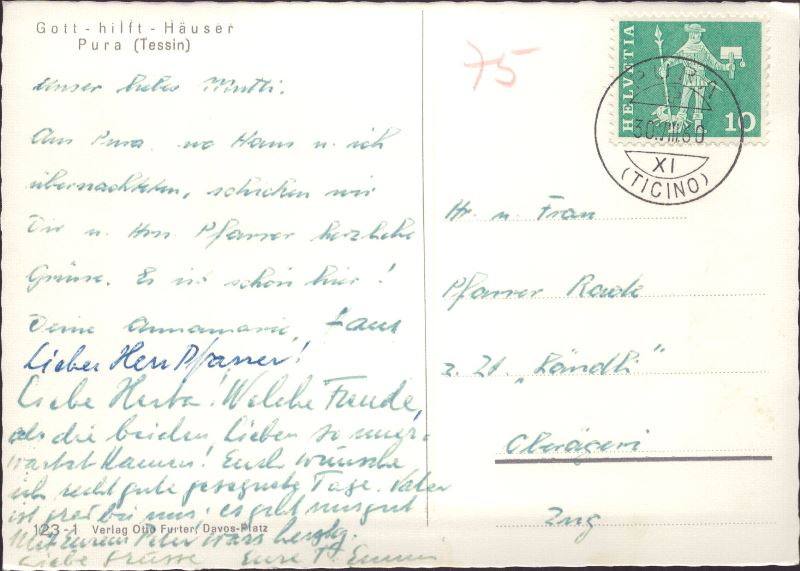 Gott - hilft - Häuser
Pura (Tessin)
Unser liebes Mutti.
Aus Pura, wo Hans u. ich
übernachteten, schicken wir
Dir u. Hrn Pfarrer herzliche
Grüsse. Es ist schön hier!
Deine Annamarie, Hans
Lieber Herr Pfarrer!
Liebe Herta! Welche Freude,
als die beiden Lieben so uner-
wartet kamen! Euch wünsche
ich recht gute gesegnete Tage. Vater
ist grad bei uns; es geht uns gut
Mit Eurem Peter wars herzig.
Liebe Grüsse Eure T. Emmy
123-1 Verlag Otto Furter, Davos-Platz
75
HELVETIA
10
PURA
30.VIII.60
XI
(TICINO)
Hr. u. Frau
Pfarrer
z. Zt. „Ländli"
Oberägeri
Zug